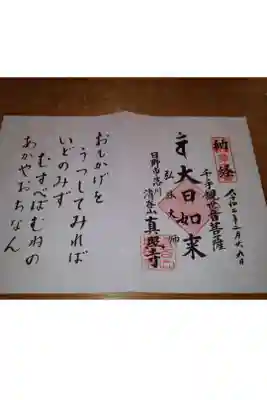 納経
千手観世音菩薩
大日如来
弘法大師
日野市落川
清谷山真照寺
おもかげを
うつしてみれば
いどのみず
むすべばむねの
あかやおちなん